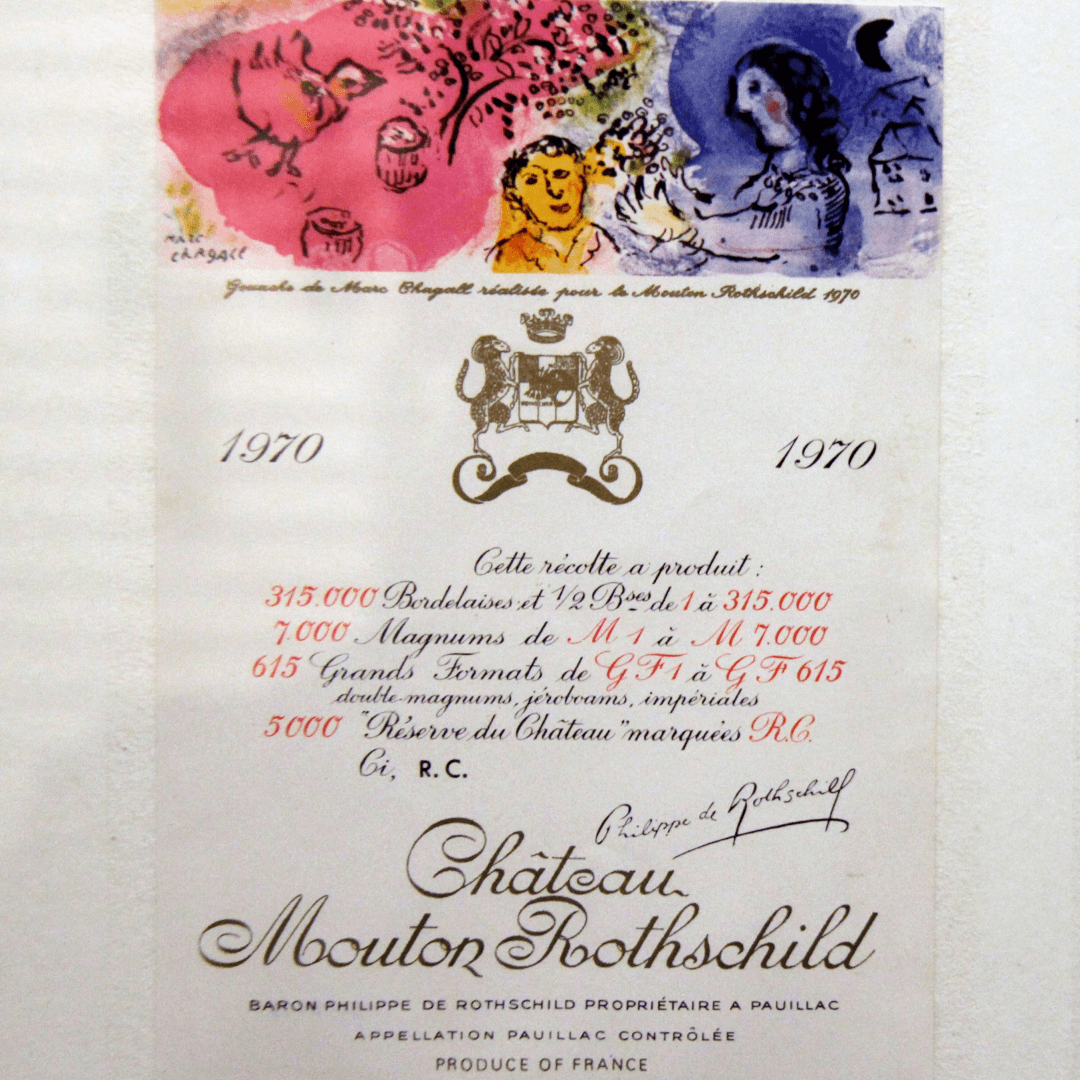 MARC
CHAGALL
Gouache de Marc Chagall réalisée pour le Mouton Rothschild 1970
1970
1970
Cette récolte a produit :
315.000 Bordelaises et 1/2 Bses de 1 à 315.000
7.000 Magnums de M 1 à M 7.000
615 Grands Formats de GF1 à GF 615
double-magnums, jéroboams, impériales
5000 "Réserve du Château" marquées R.C.
Ci, R.C.
Philippe de Rothschild
Château
Mouton Rothschild
BARON PHILIPPE DE ROTHSCHILD PROPRIÉTAIRE A PAUILLAC
APPELLATION PAUILLAC CONTRÔLÉE
PRODUCE OF FRANCE